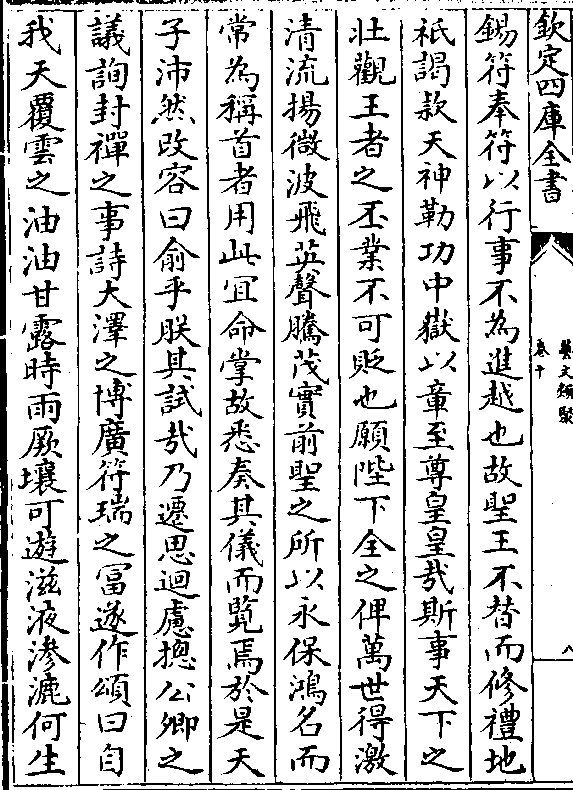 欽定四庫全書
藝文類聚
卷十
八
錫符奉符以行事不為進越也故聖王不替而修禮地
祇謁款天神勒功中嶽以章至尊皇皇哉斯事天下之
壯觀王者之丕業不可貶也願陛下全之俾萬世得激
清流揚微波飛英聲騰茂實前聖之所以永保鴻名而
常為稱首者用此宜命掌故悉奏其儀而覽焉於是天
子沛然改容曰俞乎朕其試哉乃遷思迴慮摠公卿之
議詢封禪之事詩大澤之博廣符瑞之富遂作頌曰自
我天覆雲之油油甘露時雨厥壤可遊滋液滲漉何生